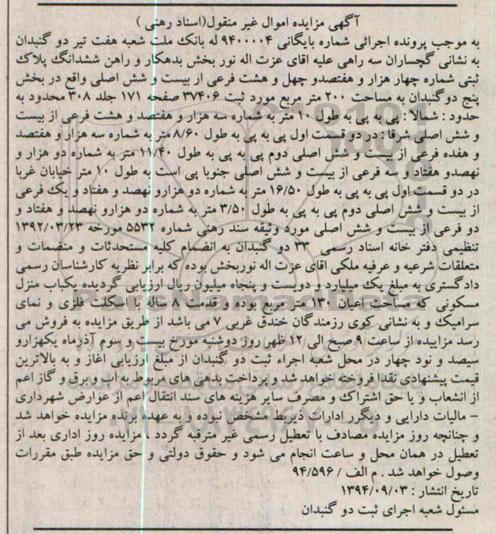 آگهی مزایده اموال غیر منقول(اسناد رهنی )
به موجب پرونده اجرائی شماره بایگانی ۹۴۰۰۰۰۴ له بانک ملت شعبه هفت تیر دو گنبدان
به نشانی گچساران سه راهی علیه اقای عزت اله نور بخش بدهکار و راهن ششدانگ پلاک
ثبتی شماره چهار هزار و هفتصدو چهل و هشت فرعی از بیست و شش اصلی واقع در بخش
پنج دوگنبدان به مساحت ۲۰۰ متر مربع مورد ثبت ۳۷۴۰۶ صفحه ۱۷۱ جلد ۳۰۸ محدود به
حدود : شمالا : پی به پی به طول ۱۰ متر به شماره سه هزار و هفتصد و هشت فرعی از بیست
و شش اصلی شرقا : در دو قسمت اول پی به پی به طول ۸/۶۰ متر به شماره سه هزار و هفتصد
و هفده فرعی از بیست و شش اصلی دوم پی به پی به طول ۱۱/۴۰ متر به شماره دو هزار و
نهصدو هفتاد و سه فرعی از بیست و شش اصلی جنوبا پی است به طول ۱۰ متر خیابان غربا
در دو قسمت اول پی به پی به طول ۱۶/۵۰ متر به شماره دو هزارو نهصد و هفتاد و یک فرعی
از بیست و شش اصلی دوم پی به پی به طول ۳/۵۰ متر به شماره دو هزارو نهصد و هفتاد و
دو فرعی از بیست و شش اصلی مورد وثیقه سند رهنی شماره ۵۵۳۲ مورخه ۱۳۹۲/۰۳/۲۳
تنظیمی دفتر خانه اسناد رسمی ۳۳ دو گنبدان به انضمام کلیه مستحدثات و منضمات و
متعلقات شرعیه و عرفیه ملکی اقای عزت اله نوربخش بوده که برابر نظریه کارشناسان رسمی
دادگستری به مبلغ یک میلیارد و دویست و پنجاه میلیون ریال ارزیابی گردیده یکباب منزل
مسکونی که مساحت اعیان ۱۳۰ متر مربع بوده و قدمت ۸ ساله با اسکلت فلزی و نمای
سرامیک و به نشانی کوی رزمندگان خندق غربی ۷ می باشد از طریق مزایده به فروش می
رسد مزاییده از ساعت ۹ صبح الی ۱۲ ظهر روز دوشنبه مورخ بیست و سوم آذرماه یکهزارو
سیصد و نود چهار در محل شعبه اجراء ثبت دو گنبدان از مبلغ ارزیابی اغاز و به بالاترین
قیمت پیشنهادی نقدا فروخته خواهد شد و پرداخت بدهی های مربوط به اب و برق و گاز اعم
از انشعاب و یا حق اشتراک و مصرف سایر هزینه های سند انتقال اعم از عوارض شهرداری
– مالیات دارایی و دیگرر ادارات ذیربط مشخص نبوده و به عهده برنده مزایده خواهد شد
و چنانچه روز مزایده مصادف با تعطیل رسمی غیر مترقبه گردد ، مزایده روز اداری بعد از
تعطیل در همان محل و ساعت انجام می شود و حقوق دولتی و حق مزایده طبق مقررات
وصول خواهد شد . م الف / ۹۴/۵۹۶
تاریخ انتشار : ۱۳۹۴/۰۹/۰۳
مسئول شعبه اجرای ثبت دو گنبدان